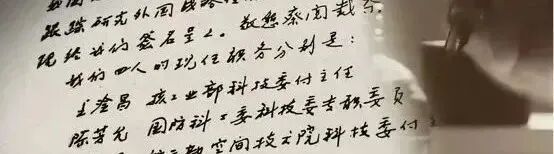 跟踪研究外国战略性
现给我的签名呈上。敬悉
我们四人的现任职务分别是：
王淦昌 核工业部科技委付主任
陈芳允 国防科工委科技委专职委员
空间技术院科技委付主